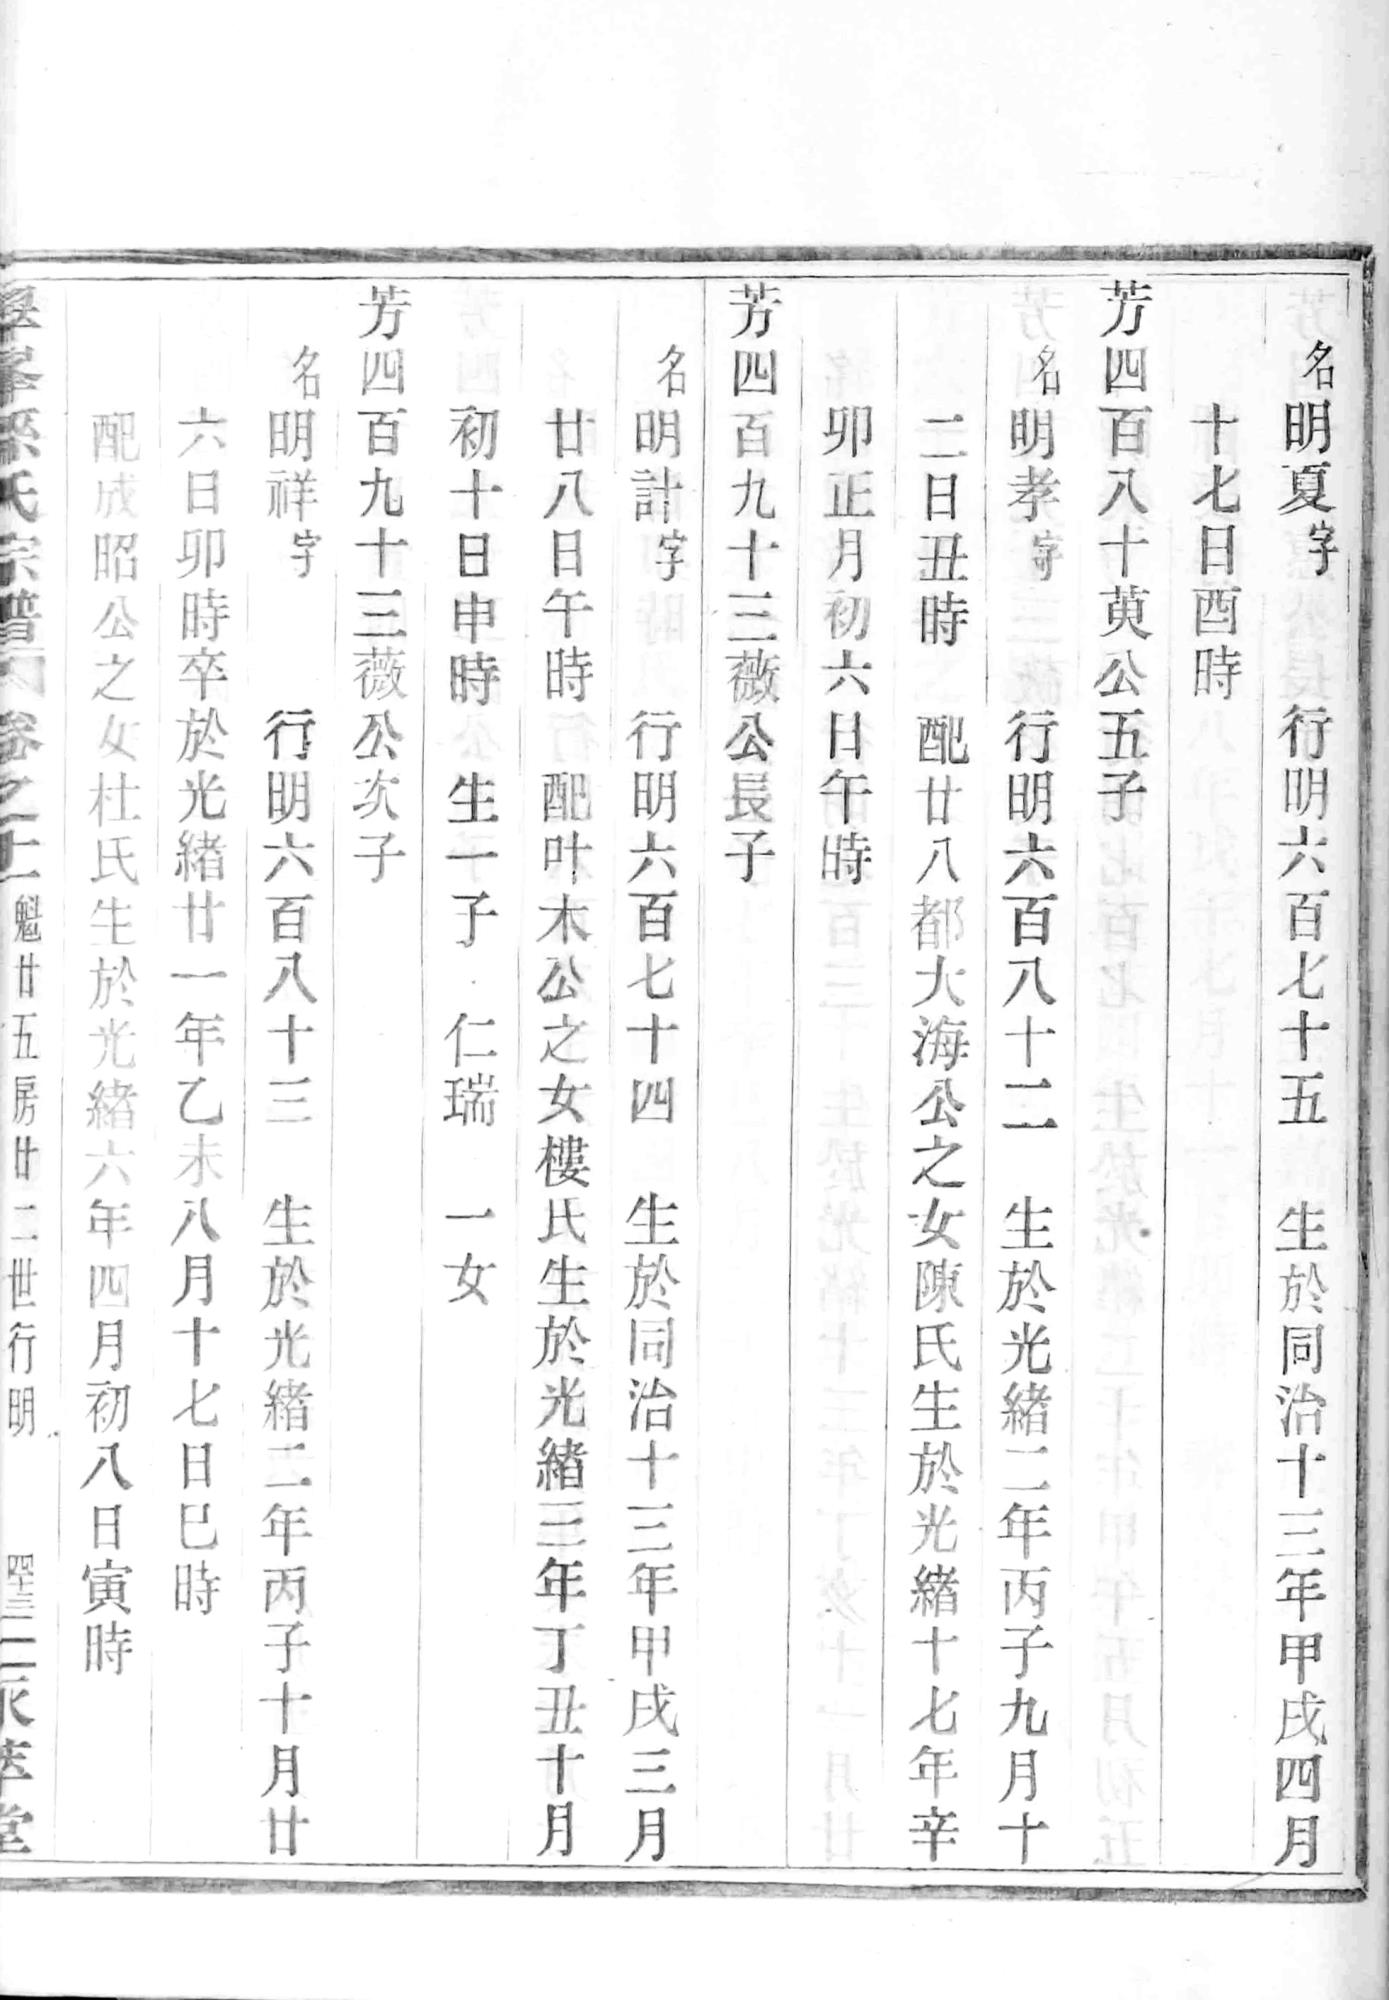 名明夏字 行明六百七十五 生於同治十三年甲戌四月
十七日酉時
芳四百八十萸公五子
名明孝字 行明六百八十二 生於光緒二年丙子九月十
二日丑時 配廿八都大海公之女陳氏生於光緒十七年辛
卯正月初六日午時
芳四百九十三薇公長子
名明計字 行明六百七十四 生於同治十三年甲戌三月
廿八日午時 配叶木公之女樓氏生於光緒三年丁丑十月
初十日申時 生一子 仁瑞 一女
芳四百九十三薇公次子
名明祥字 行明六百八十三 生於光緒二年丙子十月廿
六日卯時卒於光緒廿一年乙未八月十七日巳時
配成昭公之女杜氏生於光緒六年四月初八日寅時
孫氏宗譜 卷之十一 魁廿五房廿二世行明 四十三 永萃堂